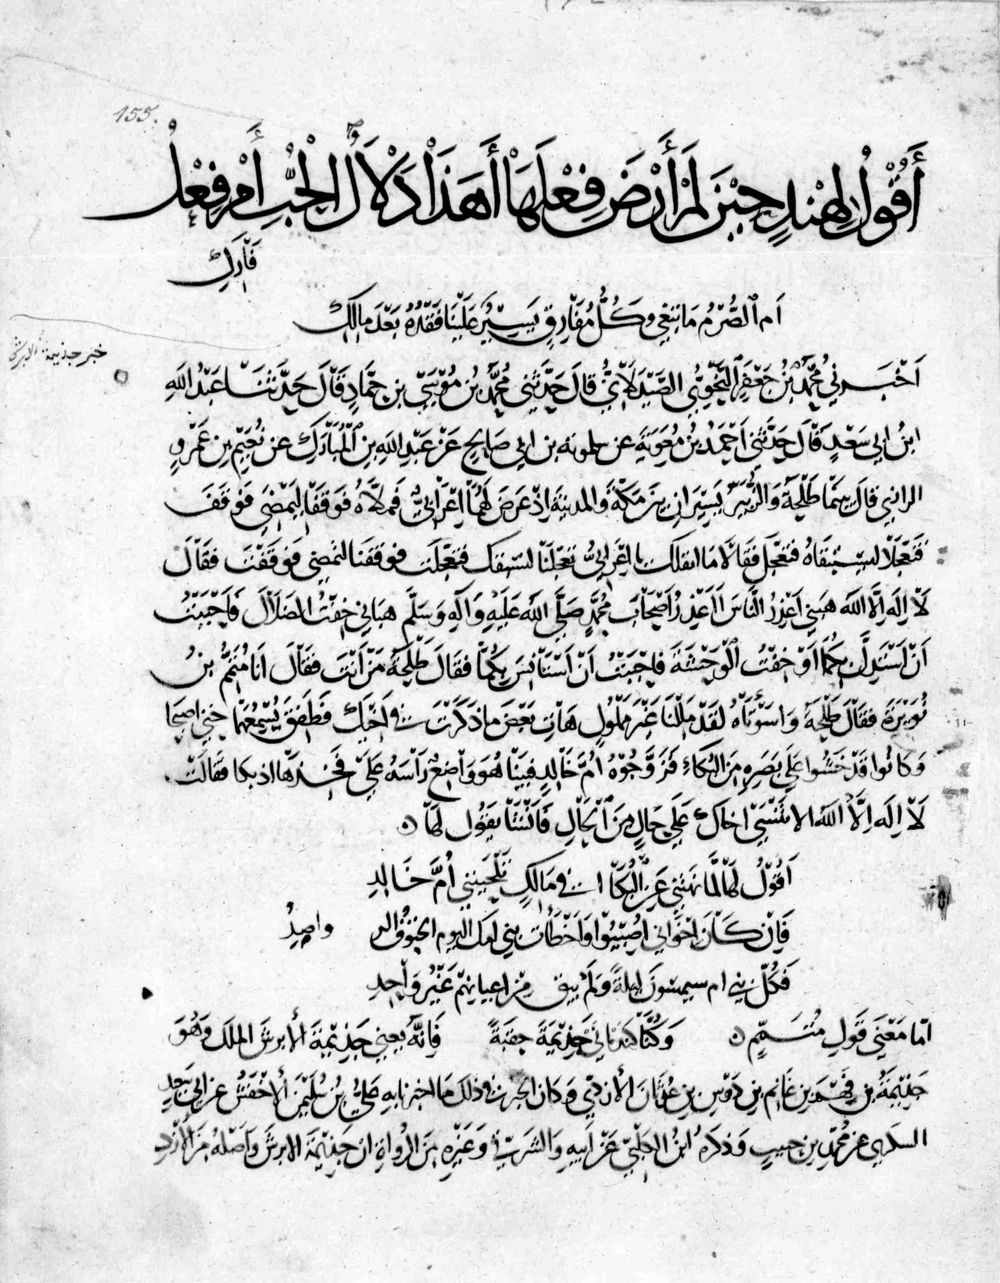 155.
أَقُوْلُ لِهِنْدٍ حِيْنَ لَمْ أَرْضَ فِعْلَهَا أَهَذَا دَلاَلُ الْحُبِّ أَمْ فِعْلُ
فَارِكِ
اَمِ الصُّرْمُ مَا تَبْغِي وَكُلُّ مُفَارِقٍ يَسِيْرٌ عَلَيْنَا فَقْدُهُ بَعْدَ مَالِكِ
خبر جذيمة الابرش
اَخْبَرَنِي مُحَمَّدُ بْنُ جَعْفَرٍ النَّحْوِيُّ الصَّيْدَلاَنِيُّ قَالَ حَدَّثَنِي مُحَمَّدُ بْنُ مُوْسَى بْنِ حَمَّادٍ قَالَ حَدَّثَنَا عَبْدُ اللهِ
ابْنُ ابِي سَعْدٍ قَالَ حَدَّثَنِي اَحْمَدُ بْنُ مُعٰوِيَةَ عن سلمويه بن ابي صَالِحٍ عَنْ عَبْدِ اللهِ بْنِ الْمُبَارَكِ عن نُعَيْمِ بْنِ عَمْرٍو
الرازي قال بينما طَلْحَةُ وَالزُّبَيْرُ يَسِيْرَانِ بَيْنَ مَكَّةَ وَالمدينة اِذْ عَرَضَ لَهُمَا اَعْرَابِيٌّ فَوَقَفَا لِيَمْضِيَ فَوَقَفَ
فَتَعَجَّلَا لِيَسْبِقَاهُ فَتَعَجَّلَ فَقَالَا مَا اثقلك يا اعْرَابِيُّ تَعَجَّلْنَا لنسبقك فَتَعَجَّلْتَ فَوَقَفْنَا لتمضي فَوَقَفْتَ فَقَالَ
لَا اِلَهَ اِلَّا اللهُ هَبْنِي اَغْدِرُ النَّاسَ أَاَغْدِرُ اَصْحَابَ مُحَمَّدٍ صَلَّى اللهُ عَلَيْهِ وَآلِهِ وَسَلَّم هباني خِفْتُ الضَّلاَلَ فَاَحْبَبْتُ
اَنْ اَسْتَدِلَّ بِكُمَا اَوْ خِفْتُ الْوَحْشَةَ فَاَحْبَبْتُ اَنْ اَسْتَأنِسَ بِكُمَا فَقَالَ طَلْحَةُ مَنْ اَنْتَ فَقَالَ اَنَا مُتَمِّمُ بْنُ
نُوَيْرَةَ فَقَالَ طَلْحَةُ وَاسَوْأَتَاهُ لَقَدْ مَلَلْنَا غَيْرَ مَمْلُولٍ هَاتِ بَعْضَ مَا ذَكَرْتَ فِي اَخِيْكَ
وَكَانُوا قَدْ خَشُوا عَلَى بَصَرِهِ مِنَ الْبُكَاءِ فَزَوَّجُوْهُ اُمَّ خَالِدٍ فَبَيْنَا هُوَ وَاضِعٌ رَأْسَهُ عَلَى فَخِذِهَا اذ بكا فقالت
لَا اِلَهَ اِلَّا اللهُ الا تَنْسَى اخاك عَلَى حَالٍ مِنَ الْحَالِ فَانْشَأَ يَقُولُ لَهَا ٥
اَقُوْلُ لَهَا لَمَّا نَهَتْنِي عَنِ الْبُكَا افِي مَالِكٍ تَلْحَيْنَنِي اُمَّ خَالِدِ
فَاِنْ كَانَ اِخْوَانِي اُصِيْبُوا وَاَخْطَأَتْ بَنِي امك اليوم الحتوف الرواصِدُ
فَكُلُّ بَنِي ام سيمسون ليلةً وَلَمْ يَبْقَ مِنْ اعيانهم غَيْرُ وَاحِدِ
امَا مَعْنَى قَوْلِ مُتَمِّمٍ ٥ وَكُنَّا كَنَدْمَانَيْ جَذِيْمَةَ حِقْبَةً فَاِنَّهُ يعني جَذِيْمَةَ الأبرش الملك وَهُوَ
جَذِيْمَةُ بْنُ فَهْمِ بن غَانِمِ بن دَوْسِ بن عُدْثَانَ الأزدي وَكَانَ الخبر في ذلك مَا اخبرنا به عَلِيُّ بْنُ سُلَيْمَن الأخفش عن ابي سَعِيْدٍ
السكري عن مُحَمَّدِ بن حبيبٍ وَذَكَرَهُ ابْنُ الكلبي عَنْ ابيهِ والشرقي وَغَيْرِه مِنَ الرواةِ ان جَذِيْمَةَ الابرش وَاَصْلُهُ مِنَ الْاَزْدِ